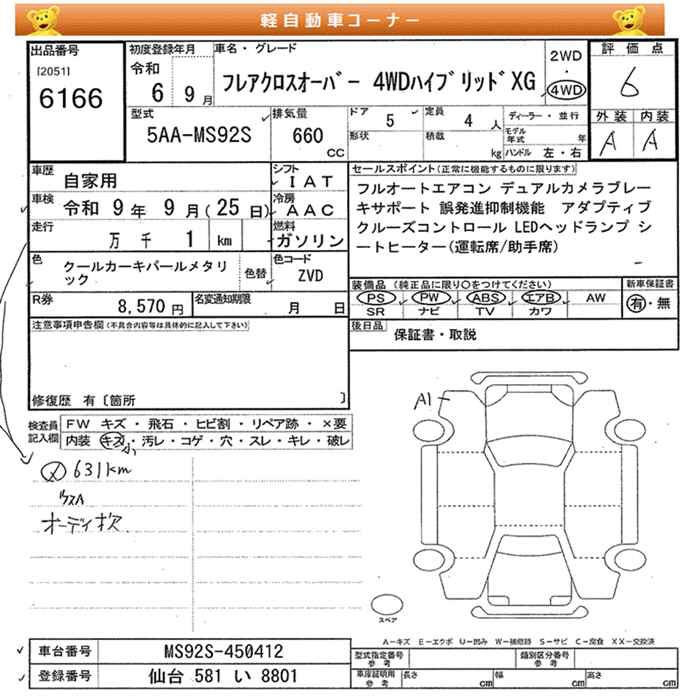 軽自動車コーナー
出品番号
[2051]
6166
初度登録年月
令和
6 9 月
車名・グレード
フレアクロスオーバー 4WDハイブリッドXG
2WD
・
4WD
評価点
6
外装 内装
A A
型式
5AA-MS92S
排気量
660
CC
ドア
5
定員
4 人
形状
積載
kg
ディーラー・並行
モデル年式 年
ハンドル 左・右
車歴
自家用
シフト
IAT
車検
令和 9 年 9 月(25 日)
冷房
AAC
走行
万 千 1 km
燃料
ガソリン
色
クールカーキパールメタリック
色替
色コード
ZVD
R券
8,570 円
名変通知期限
月 日
セールスポイント(正常に機能するものに限ります)
フルオートエアコン デュアルカメラブレー
キサポート 誤発進抑制機能 アダプティブ
クルーズコントロール LEDヘッドランプ シ
ートヒーター(運転席/助手席)
装備品(純正品に限り○をつけてください)
新車保証書
PS PW ABS エアB AW
有・無
SR ナビ TV カワ
後日品
保証書・取説
注意事項申告欄(不具合内容等は具体的に記入して下さい)
修復歴 有〔箇所 〕
検査員記入欄
FW キズ・飛石・ヒビ割・リペア跡・×要
内装 キズ・汚レ・コゲ・穴・スレ・キレ・破レ
小
631km
オーディオ
A1
スペア
A-キズ E-エクボ U-凹み W-補修跡 S-サビ C-腐食 XX-交換済
車台番号
MS92S-450412
登録番号
仙台 581 い 8801
型式指定番号
参考
類別区分番号
参考
車庫証明用
参考
長さ cm
幅 cm
高さ cm